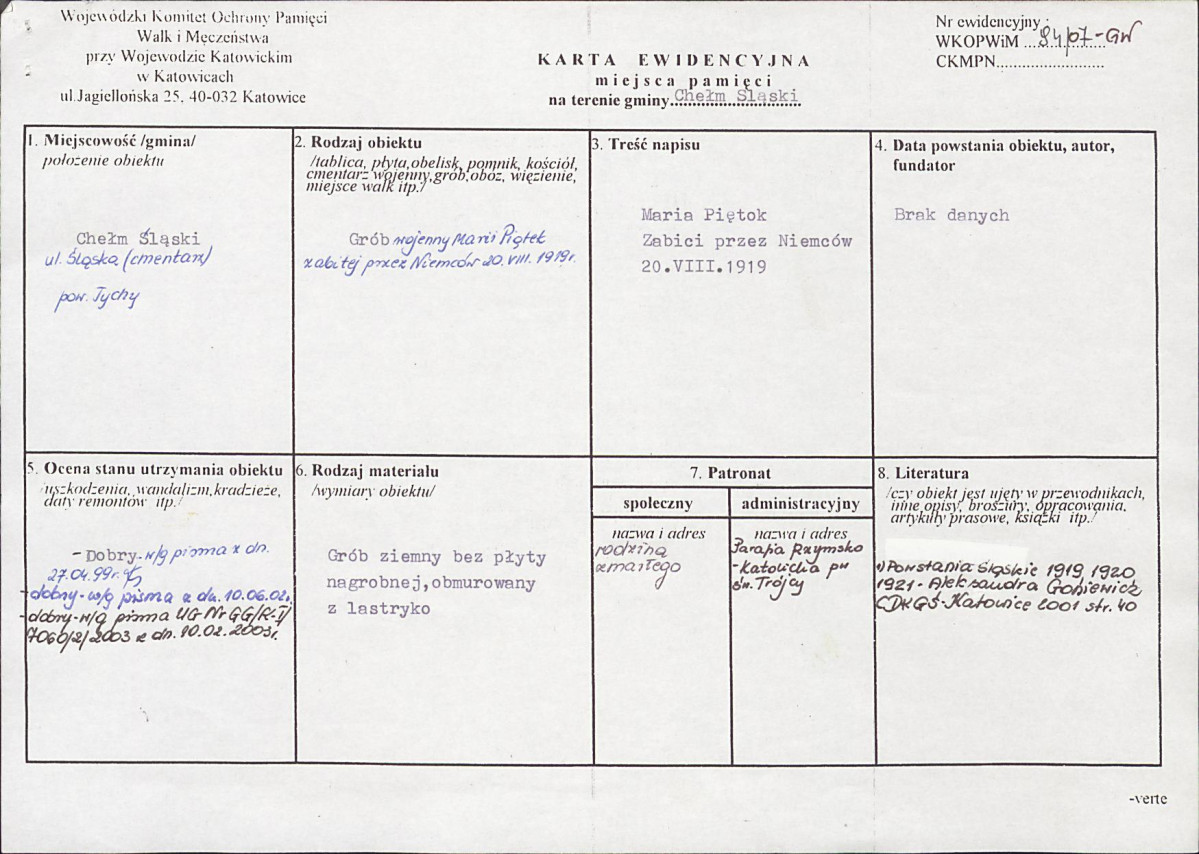 Wojewódzki Komitet Ochrony Pamięci
Walk i Męczeństwa
przy Wojewodzie Katowickim
w Katowicach
ul.Jagiellońska 25, 40-032 Katowice
KARTA EWIDENCYJNA
miejsca pamięci
na terenie gminy Chełm Śląski
Nr ewidencyjny :
WKOPWiM ...94/07-GW
CKMPN..........................
1. Miejscowość /gmina/
położenie obiektu
Chełm Śląski
ul. Śląska (cmentarz)
pow. Tychy
2. Rodzaj obiektu
/tablica, płyta,obelisk, pomnik, kościół,
cmentarz wojenny,grób,obóz, więzienie,
miejsce walk itp./
Grób wojenny Marii Piątek
zabitej przez Niemców 20.VIII.1919r.
3. Treść napisu
Maria Piętok
Zabici przez Niemców
20.VIII.1919
4. Data powstania obiektu, autor,
fundator
Brak danych
5. Ocena stanu utrzymania obiektu
/uszkodzenia, wandalizm,kradzieże,
daty remontów itp./
- Dobry-w/g pisma z dn.
27.04.99r.
-dobry- w/g pisma z dn. 10.06.02r.
-dobry-w/g pisma UG Nr GG/K-I/
7060/2/2003 z dn. 10.02.2003r.
6. Rodzaj materiału
/wymiary obiektu/
Grób ziemny bez płyty
nagrobnej,obmurowany
z lastryko
7. Patronat
społeczny
nazwa i adres
rodzina
zmarłego
administracyjny
nazwa i adres
Parafia Rzymsko
-Katolicka pw
Św. Trójcy
8. Literatura
/czy obiekt jest ujęty w przewodnikach,
inne opisy, broszury, opracowania,
artykuły prasowe, książki itp./
1) Powstania Śląskie 1919, 1920,
1921 - Aleksandra Goniewicz
CDKGŚ-Katowice 2001 str. 40
-verte